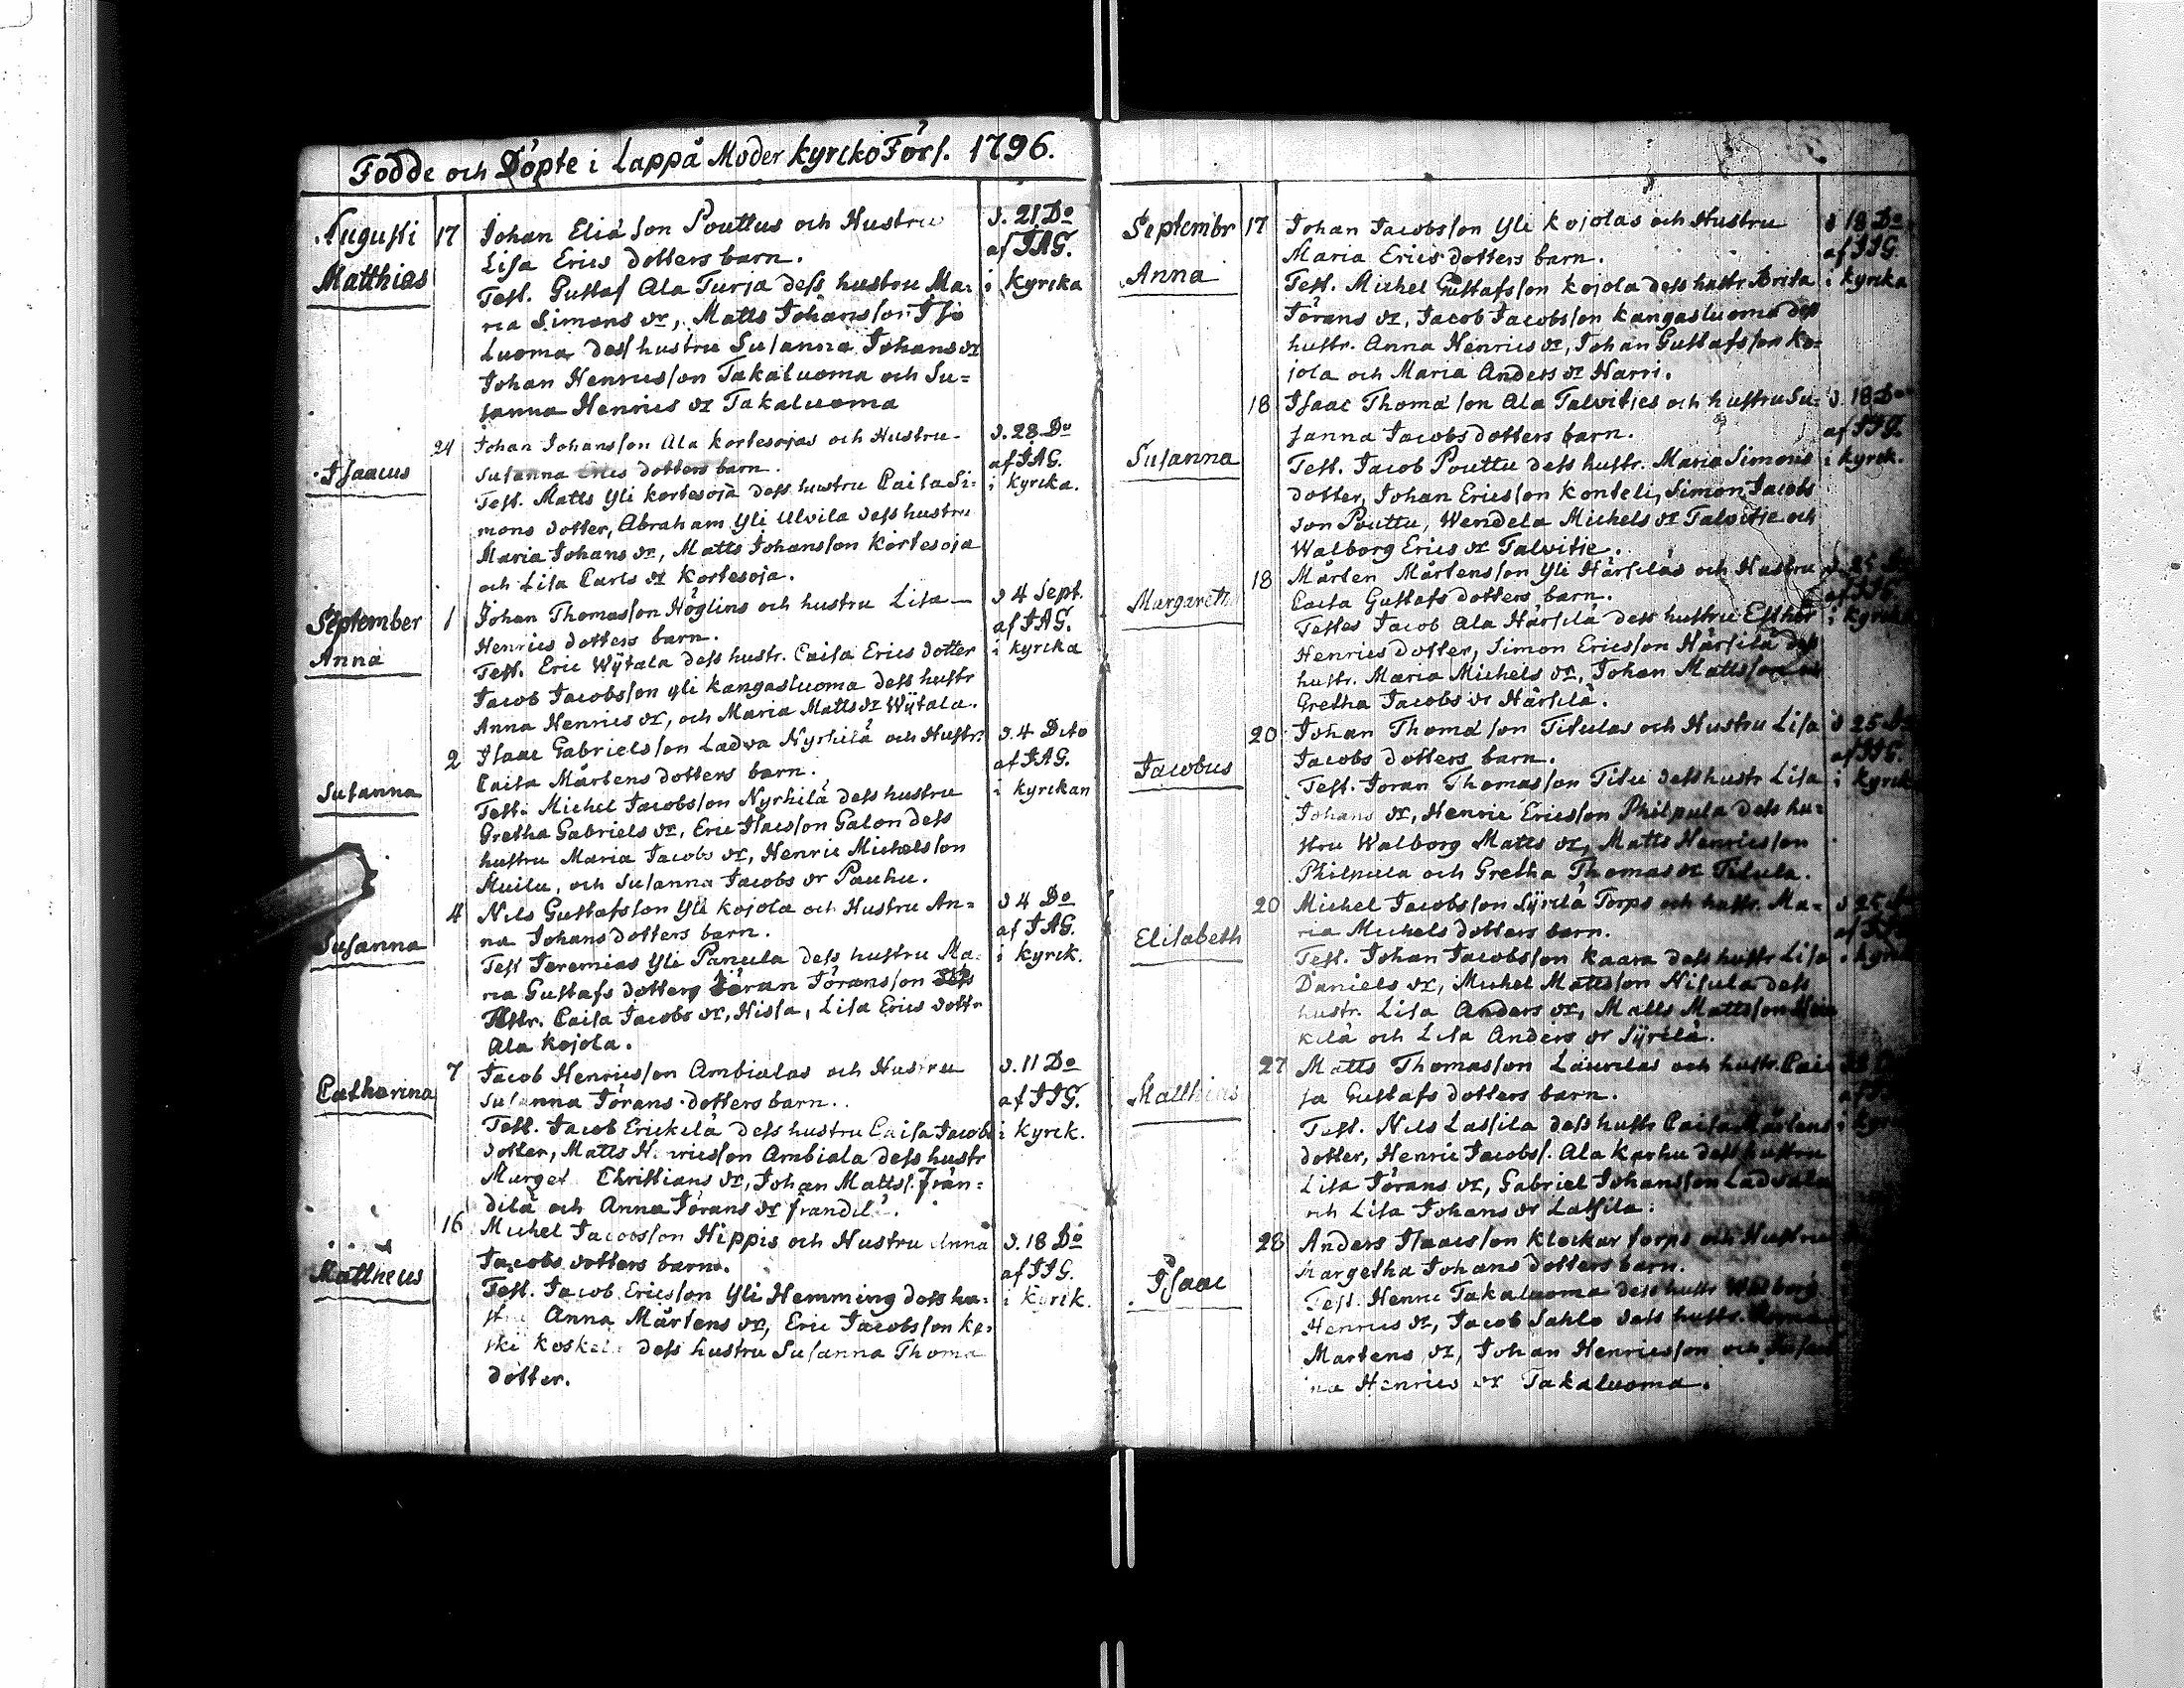 Födde och Döpte i Lappå Moder kyrcko Förs. 1796.
Augusti 17 Johan Elia son Pouttus och Hustru d. 21 Do
Lisa Erics dotters barn. af JAG.
Matthias Test. Gustaf Ala Turja dess hustru Ma= i kyrcka
ria Simons dr, Matts Johansson Iso
Luoma dess hustru Susanna Johans dr
Johan Henricsson Takaluoma och Su=
sanna Henrics dr Takaluoma
24 Johan Johansson Ala kortesojas och Hustru d. 28 Do
Isaacus Susanna Erics dotters barn. af JAG.
Test. Matts Yli kortesoja dess hustru Caisa Si= i kyrcka.
mons dotter, Abraham Yli Ulvila dess hustru
Maria Johans dr, Matts Johansson Kortesoja
och Lisa Carls dr Kortesoja.
September 1 Johan Thomasson Höglins och hustru Lisa d 4 Sept.
Henrics dotters barn. af JAG.
Anna Test. Eric Wÿtala dess hustr. Caisa Erics dotter i kyrcka
Jacob Jacobsson yli kangasluoma dess hustr
Anna Henrics dr, och Maria Matts dr Wÿtala.
2 Isaac Gabrielsson Ladva Nyrhilä och Hustr. d. 4 Dito
Caisa Mårtens dotters barn. af JAG.
Susanna Test. Michel Jacobsson Nyrhilä dess hustru i kyrckan
Gretha Gabriels dr, Eric Isacsson Galon dess
hustru Maria Jacobs dr, Henric Michelsson
Muilu, och Susanna Jacobs dr Pauhu.
4 Nils Gustafsson Yli kojola och Hustru An= d 4 Do
na Johans dotters barn. af JAG.
Susanna Test Jeremias Yli Panula dess hustru Ma= i kyrck.
ria Gustafs dotter, Jöran Jöransson dess
Hustr. Caisa Jacobs dr, Hissa, Lisa Erics dottr
Ala kojola.
7 Jacob Henricsson Ambialas och Hustru d. 11 Do
Catharina Susanna Jörans dotters barn. af JJG.
Test. Jacob Erickilä dess hustru Caisa Jacobs i kyrck.
dotter, Matts Henricsson Ambiala dess hustr
Marget Christians dr, Johan Matts s. frän=
dilä och Anna Jörans dr frändil
16 Michel Jacobsson Hippis och Hustru Anna d. 18 Do
Jacobs dotters barn. af JJG.
Mattheus Test. Jacob Ericsson Yli Hemming dess hu= i kyrck.
Anna Mårtens dr, Eric Jacobsson ke=
ski koskela dess hustru Susanna Thoma
dotter.
Septembr 17 Johan Jacobsson Yli kojolas och Hustru d 18 Do
Maria Erics dotters barn. af JJG
Anna Test. Michel Gustafsson kojola dess hustr. Brita i kyrcka
Jörans dr, Jacob Jacobsson kangasluoma dess
hustr. Anna Henrics dr, Johan Gustafsson Ko=
jola och Maria Anders dr Harri.
18 Isaac Thoma son Ala Talvitjes och hustru Su= d. 18 Do
sanna Jacobs dotters barn. af JJG.
Susanna Test. Jacob Pouttu dess hustr. Maria Simons i kyrck.
dotter, Johan Ericsson konteli, Simon Jacobs
son Pouttu, Wendela Michels dr Talvitje och
Walborg Erics dr Talvitie.
18 Mårten Mårtensson Yli Härsiläs och Hustru d. 25
Margareth Caisa Gustafs dotters barn. af JJG.
Testes Jacob Ala Härsilä dess hustru Esther i kyrck
Henrics dotter, Simon Ericsson Härsilä dess
hustr. Maria Michels dr, Johan Mattsson
Gretha Jacobs dr Härsilä.
20 Johan Thoma son Titulas och Hustru Lisa d 25
Jacobus Jacobs dotters barn. af JJG.
Test. Jöran Thomasson Titu dess hustr Lisa i kyrck
Johans dr, Henric Ericsson Philpula dess hu=
stru Walborg Matts dr, Matts Henricsson
Philpula och Gretha Thomas dr Titula.
20 Michel Jacobsson Syrilä Torps och hustr. Ma= d 25
Elisabeth ria Michels dotters barn.
Test. Johan Jacobsson kaara dess hustr Lisa i kyrck
Daniels dr, Michel Mattsson Nisula dess
hustr. Lisa Anders dr, Matts Mattsson Hei
kilä och Lisa Anders dr Syrilä.
27 Matts Thomasson Laurilas och hustr. Cai
Matthias sa Gustafs dotters barn.
Test. Nils Lassila dess hustr Caisa Mårtens i kyrc
dotter, Henric Jacobs s. Ala Karhu dess hustru
Lisa Jörans dr, Gabriel Johansson Ladvala
och Lisa Johans dr Lassila.
28 Anders Isaacsson klockar torps och Hustru
Margetha Johans dotters barn.
Isaac Test. Henric Takaluoma dess hustr Walborg
Henrics dr, Jacob Sahlo dess hustr. Anna
Martens dr, Johan Henricsson och Susan
na Henrics dr Takaluoma.